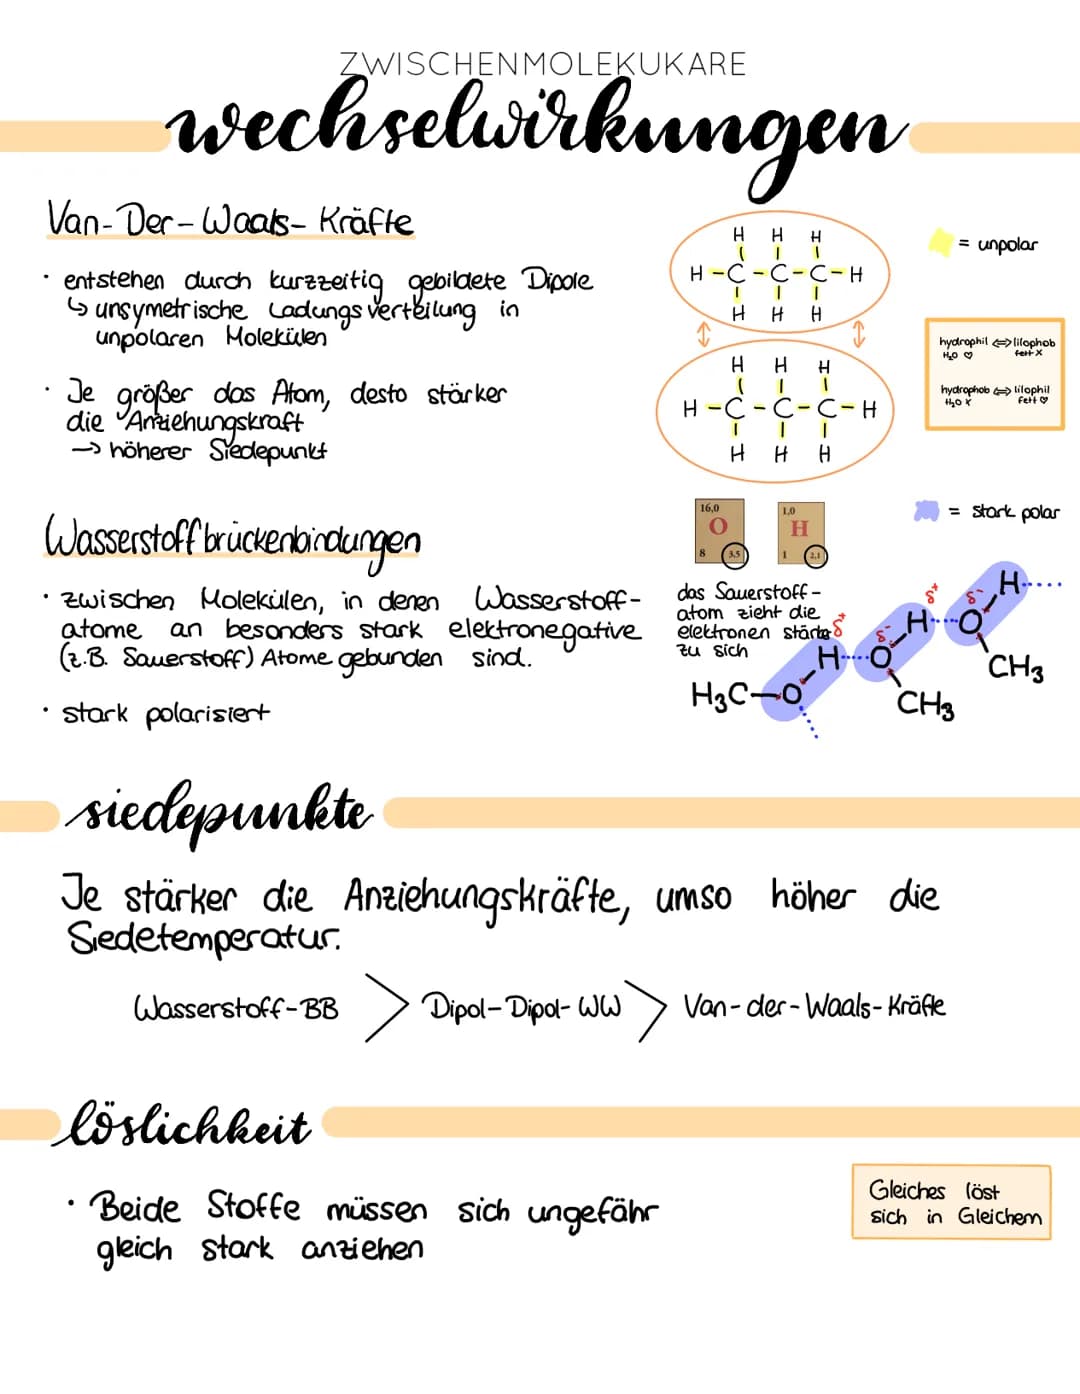 ZWISCHENMOLEKUKARE
wechselwirkungen
Van-Der-Waals-Kräfte
· entstehen durch kurzzeitig gebildete Dipole
↳ unsymetrische Ladungsverteilung in
unpolaren Molekülen
· Je größer das Atom, desto stärker
die Anziehungskraft
→ höherer Siedepunkt
H H H
H-C-C-C-H
H H H
H H H
H-C-C-C-H
H H H
= unpolar
hydrophil ⇔ lilophob
H₂O ♡ fett X
hydrophob ⇔ lilophil
H₂O X fett ♡
Wasserstoffbrückenbindungen
· zwischen Molekülen, in denen Wasserstoff-
atome an besonders stark elektronegative
(z.B. Sauerstoff) Atome gebunden sind.
· stark polarisiert
16,0
O
8 3,5
1,0
H
1 2,1
= stark polar
das Sauerstoff-
atom zieht die
elektronen stärke
zu sich
δ⁺ δ⁻ H
δ⁺ δ⁻ H····O
H····O CH₃
H₃C-O CH₃
siedepunkte
Je stärker die Anziehungskräfte, umso höher die
Siedetemperatur.
Wasserstoff-BB > Dipol-Dipol-WW > Van-der-Waals-Kräfte
löslichkeit
· Beide Stoffe müssen sich ungefähr
gleich stark anziehen
Gleiches löst
sich in Gleichem